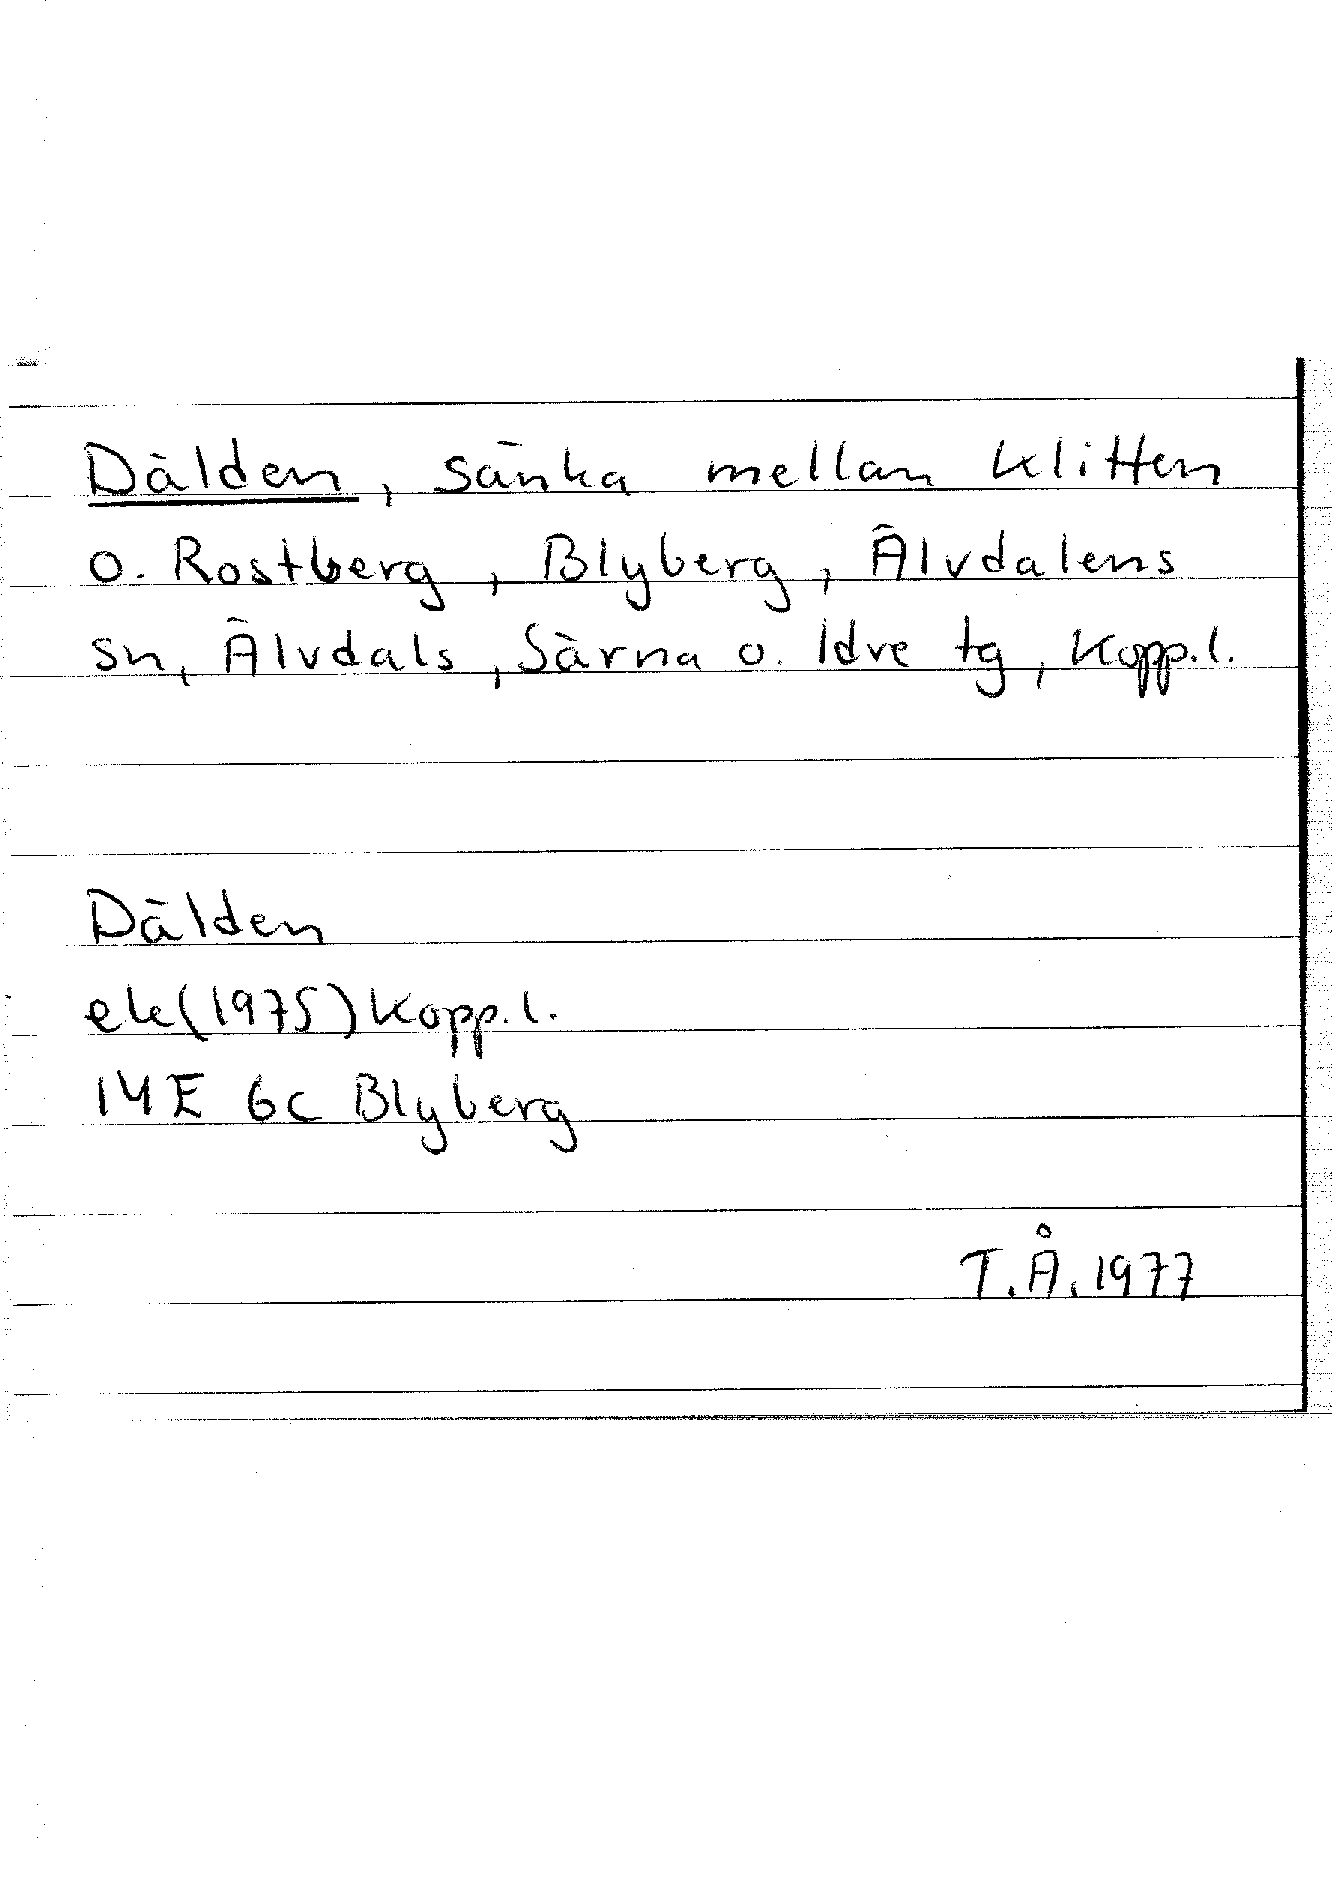 Dälden, sänka mellan Klitten
o. Rostberg, Blyberg, Älvdalens
sn, Älvdals, Särna o. Idre tg, Kopp.l.
Dälden
ek(1975)Kopp.l.
14E 6c Blyberg
T.Å.1977